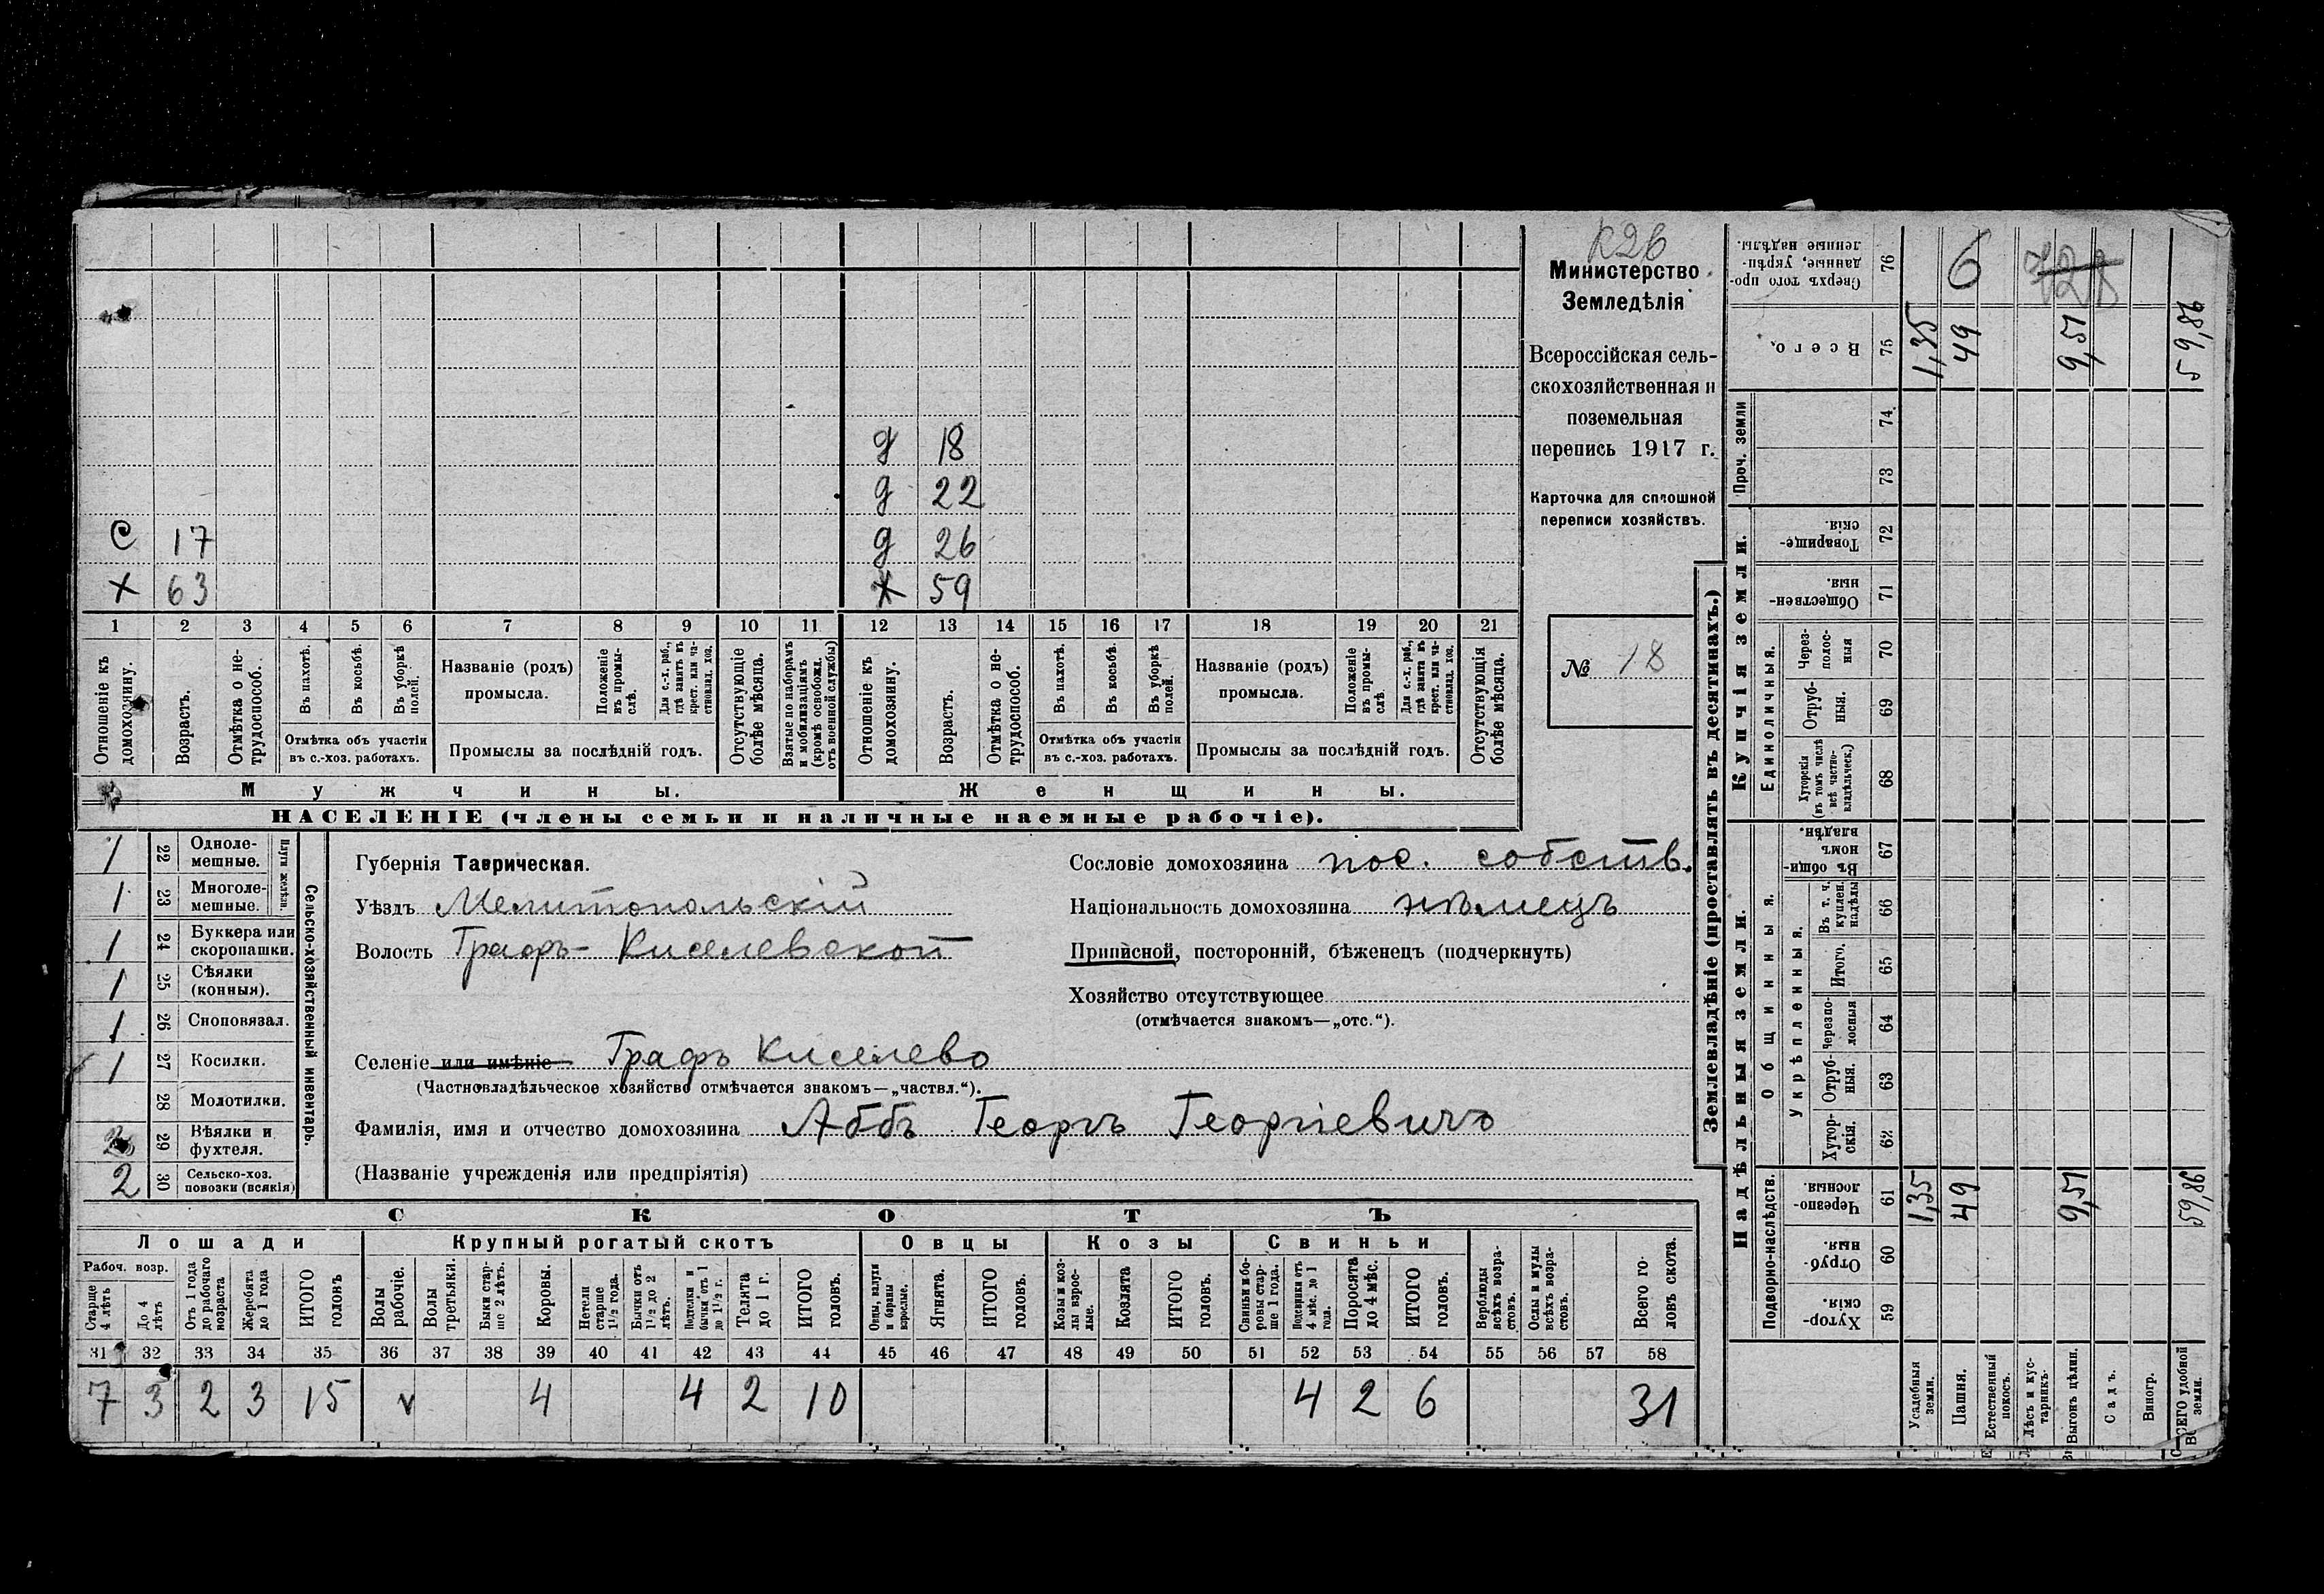 К26
Министерство
Земледѣлія
Всероссійская сель-
скохозяйственная и
поземельная
перепись 1917 г.
Карточка для сплошной
переписи хозяйствъ.
№ 18
д 18
д 22
с 17 д 26
х 63 ж 59
1 2 3 4 5 6 7 8 9 10 11 12 13 14 15 16 17 18 19 20 21
Отношеніе къ домохозяину.
Возрастъ.
Отмѣтка о не-трудоспособ.
Въ пахотѣ.
Въ косьбѣ.
Въ уборкѣ полей.
Отмѣтка объ участіи
въ с.-хоз. работахъ.
Названіе (родъ)
промысла.
Положеніе въ промы-слѣ.
Для с.-х. раб., гдѣ занятъ въ крест. или ча-стновлад. хоз.
Промыслы за послѣдній годъ.
Отсутствующіе болѣе мѣсяца.
Взятые по наборамъ и мобилизаціямъ (кромѣ освобожд. отъ военной службы)
Отношеніе къ домохозяину.
Возрастъ.
Отмѣтка о не-трудоспособ.
Въ пахотѣ.
Въ косьбѣ.
Въ уборкѣ полей.
Отмѣтка объ участіи
въ с.-хоз. работахъ.
Названіе (родъ)
промысла.
Положеніе въ промы-слѣ.
Для с.-х. раб., гдѣ занята въ крест. или ча-стновлад. хоз.
Промыслы за послѣдній годъ.
Отсутствующія болѣе мѣсяца.
Мужчины. Женщины.
НАСЕЛЕНІЕ (члены семьи и наличные наемные рабочіе).
Сельско-хозяйственный инвентарь.
Плуги желѣзн.
1 22 Однолемешные.
1 23 Многолемешные.
1 24 Буккера или скоропашки.
1 25 Сѣялки (конныя).
1 26 Сноповязал.
1 27 Косилки.
28 Молотилки.
29 Вѣялки и фухтеля.
2 30 Сельско-хоз. повозки (всякія)
Губернія Таврическая.
Уѣздъ Мелитопольскій
Волость Графъ-Киселевской
Селеніе или имѣніе Графъ Киселево
(Частновладѣльческое хозяйство отмѣчается знакомъ—„частвл.“).
Фамилія, имя и отчество домохозяина Аббъ Георгъ Георгіевичъ
(Названіе учрежденія или предпріятія)
Сословіе домохозяина пос. собств.
Національность домохозяина нѣмецъ
Приписной, посторонній, бѣженецъ (подчеркнуть)
Хозяйство отсутствующее
(отмѣчается знакомъ—„отс.“).
СКОТЪ
Лошади Крупный рогатый скотъ Овцы Козы Свиньи
Рабоч. возр.
Старше 4 лѣтъ
До 4 лѣтъ
Отъ 1 года до рабочаго возраста
Жеребята до 1 года
ИТОГО головъ
Волы рабочіе.
Волы третьяки.
Быки стар-ше 2 лѣтъ.
Коровы.
Нетели старше 1½ года.
Бычки отъ 1½ до 2 лѣтъ.
Подтелки и бычки отъ 1 до 1½ г.
Телята до 1 г.
ИТОГО головъ.
Овцы, валухи и бараны взрослые.
Ягнята.
ИТОГО головъ.
Козы и коз-лы взрос-лые.
Козлята
ИТОГО головъ.
Свиньи и бо-ровы стар-ше 1 года.
Подсвинки отъ 4 мѣс. до 1 года.
Поросята до 4 мѣс.
ИТОГО головъ.
Верблюды всѣхъ возра-стовъ.
Ослы и мулы всѣхъ возра-стовъ.
Всего го-ловъ скота.
31 32 33 34 35 36 37 38 39 40 41 42 43 44 45 46 47 48 49 50 51 52 53 54 55 56 57 58
7 3 2 3 15 v 4 4 2 10 4 2 6 31
Землевладѣніе (проставлять въ десятинахъ.)
Надѣльныя земли. Купчія земли. Проч. земли
Подворно-наслѣдств.
Общинныя.
Укрѣпленныя.
Единоличныя.
Хутор-скія. 59
Отруб-ныя. 60
Черезпо-лосныя. 61 1,35 49 9,51 59,86
Хутор-скія. 62
Отруб-ныя. 63
Черезпо-лосныя 64
Итого. 65
Въ т. ч. куплен. надѣлы 66
Въ общин-номъ владѣн. 67
Хуторскія (въ томъ числѣ всѣ частно-владѣльческ.) 68
Отруб-ныя. 69
Через-полос-ныя 70
Обществен-ныя. 71
Товарище-скія. 72
73
74
Всего. 75 1,35 49 9,51 59,86
Сверхъ того про-данные, укрѣп-ленные надѣлы. 76 6
Усадебныя земли.
Пашня.
Естественный покосъ.
Лѣсъ и кус-тарникъ.
Выгонъ цѣлин.
Садъ.
Виногр.
ВСЕГО удобной земли.